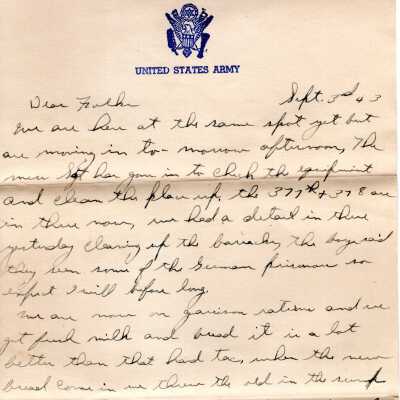 UNITED STATES ARMY
Dear Father Sept. 3rd 43
We are here at the same spot yet but
are moving in to-morrow afternoon, The
mess Sgt has gone in to check the equipment
and clean the place up, the 377th + 378 are
in there now, we had a detail in there
yesterday cleaning up the barracks, the boys said
they seen some of the German prisoners so
expect I will before long.
We are now on garrison rations and we
get fresh milk and bread it is a lot
better than that hard tac, when the new
bread come in we threw the old in the sump